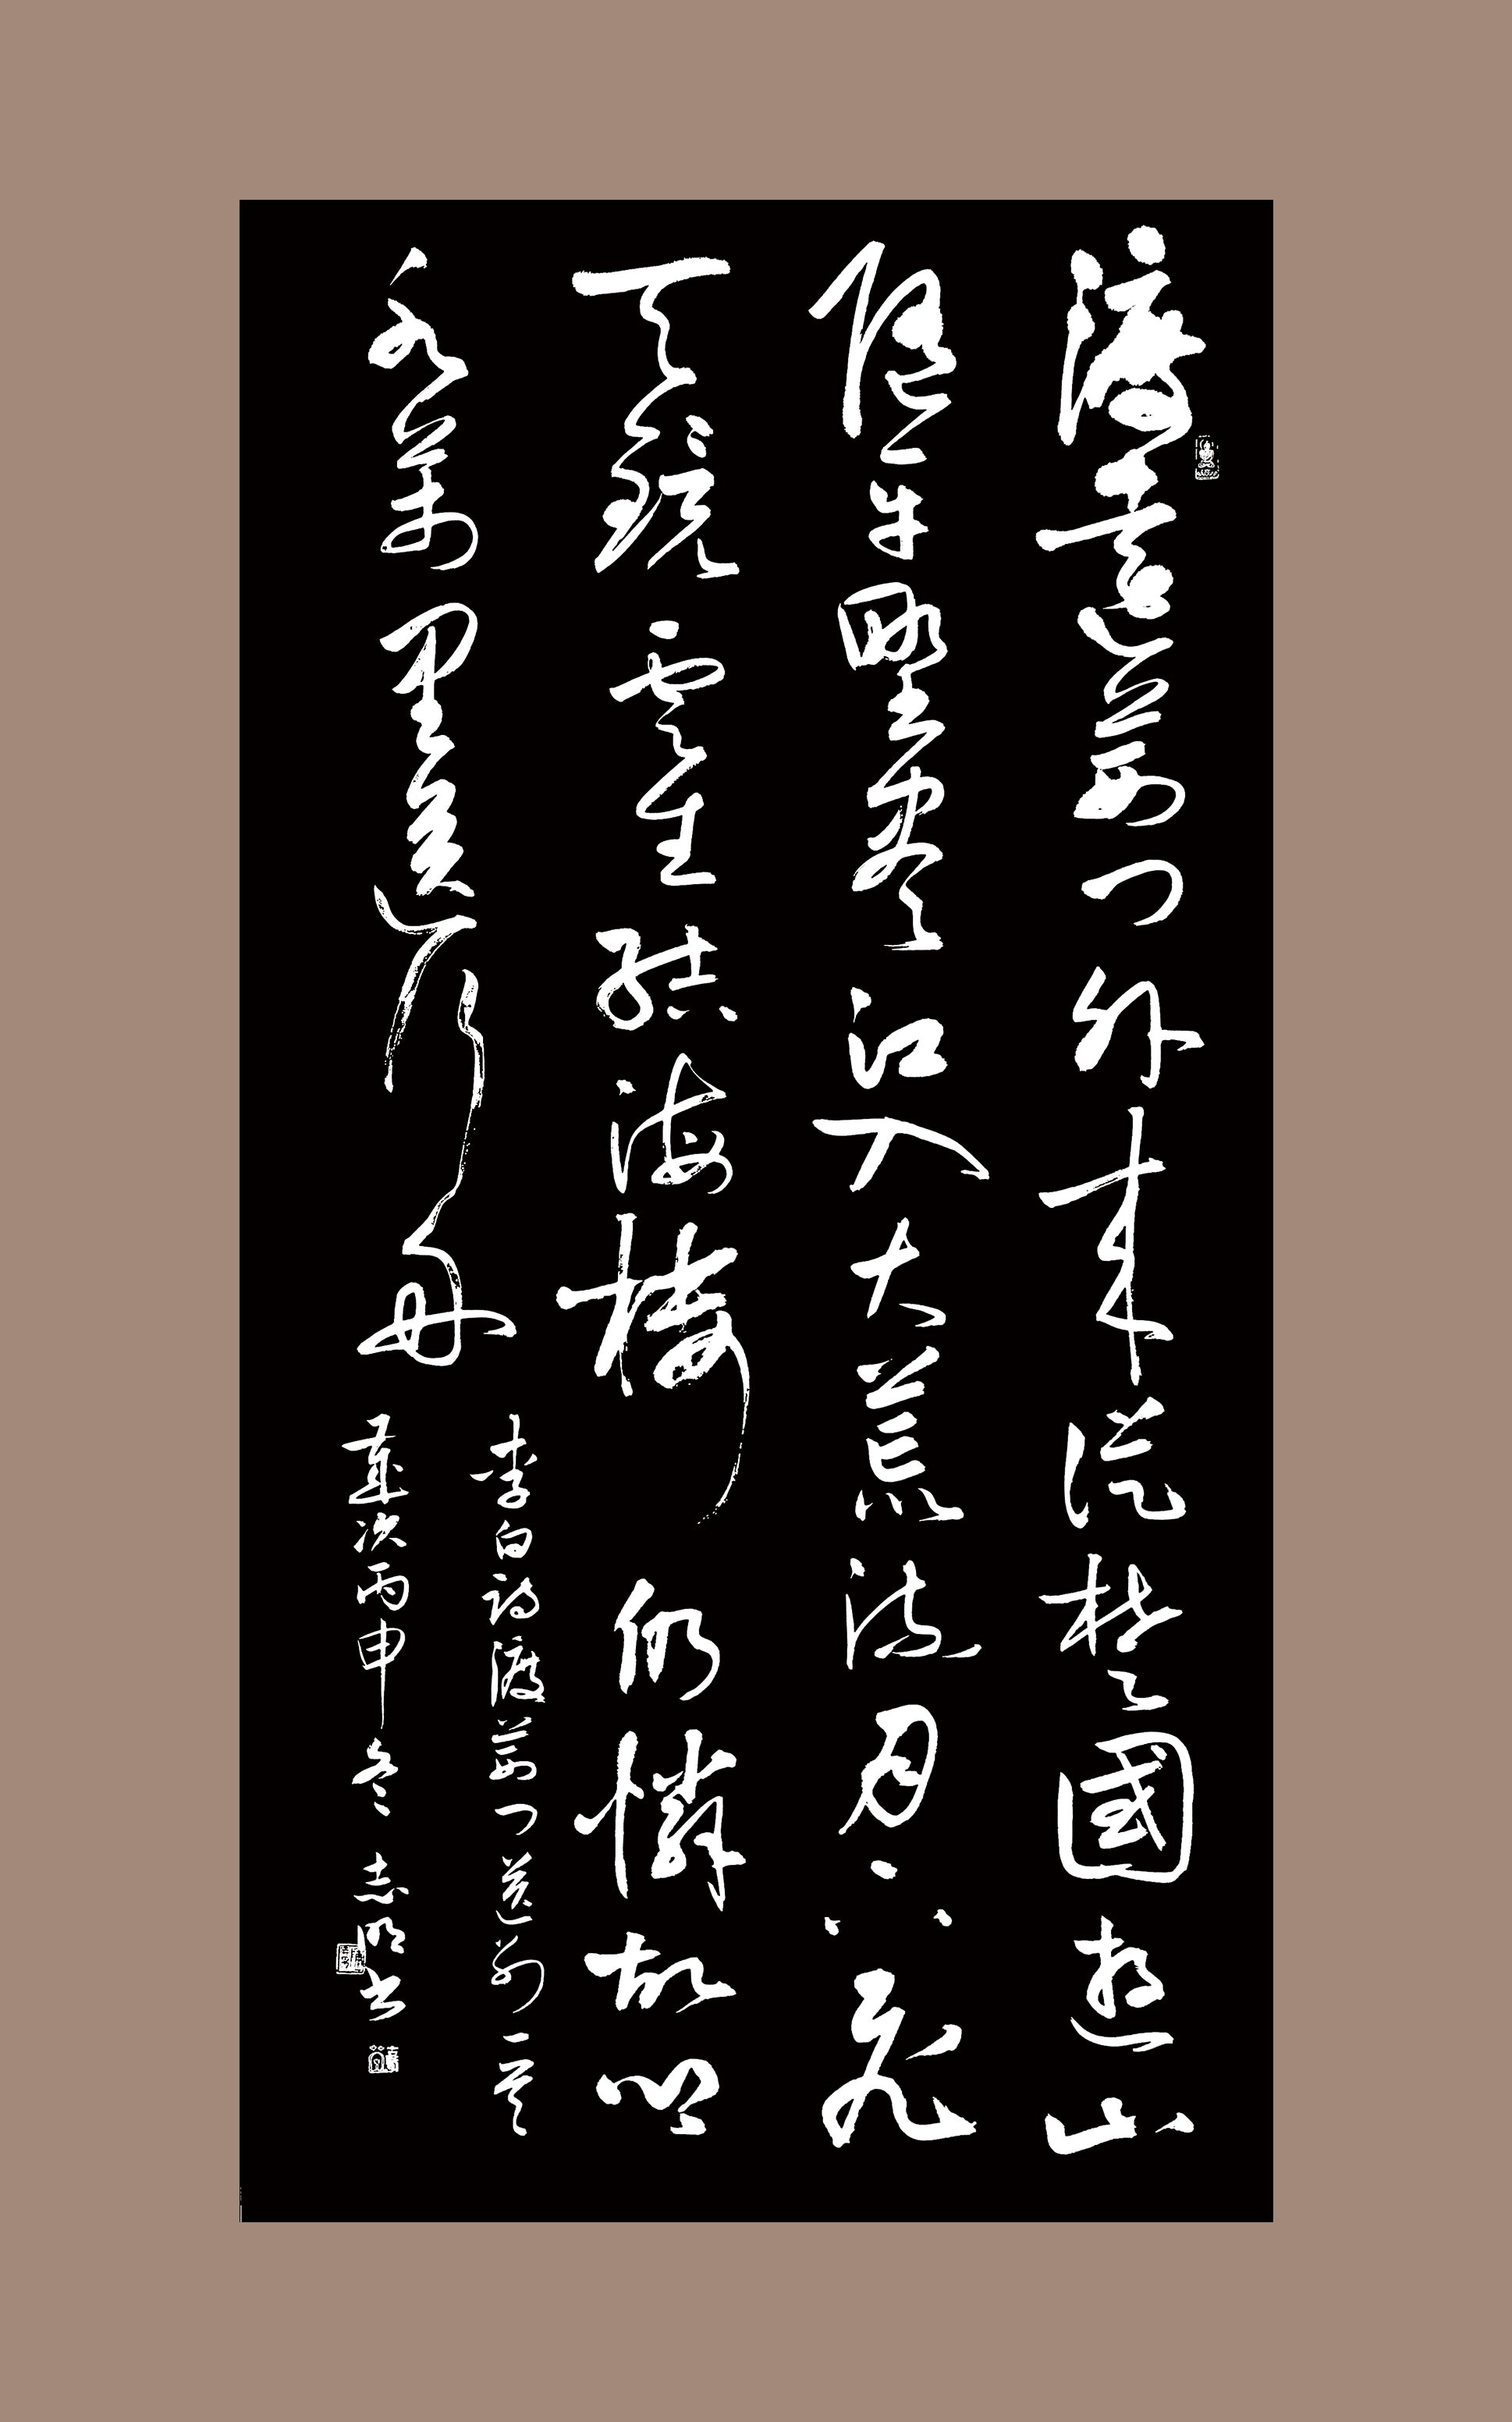 渡遠荊門外來從楚國遊山
隨平野盡江入大荒流月下飛
天鏡雲生結海樓仍憐故鄉
水萬里送行舟
李白詩渡荊門送別一首
歲次丙申冬志書